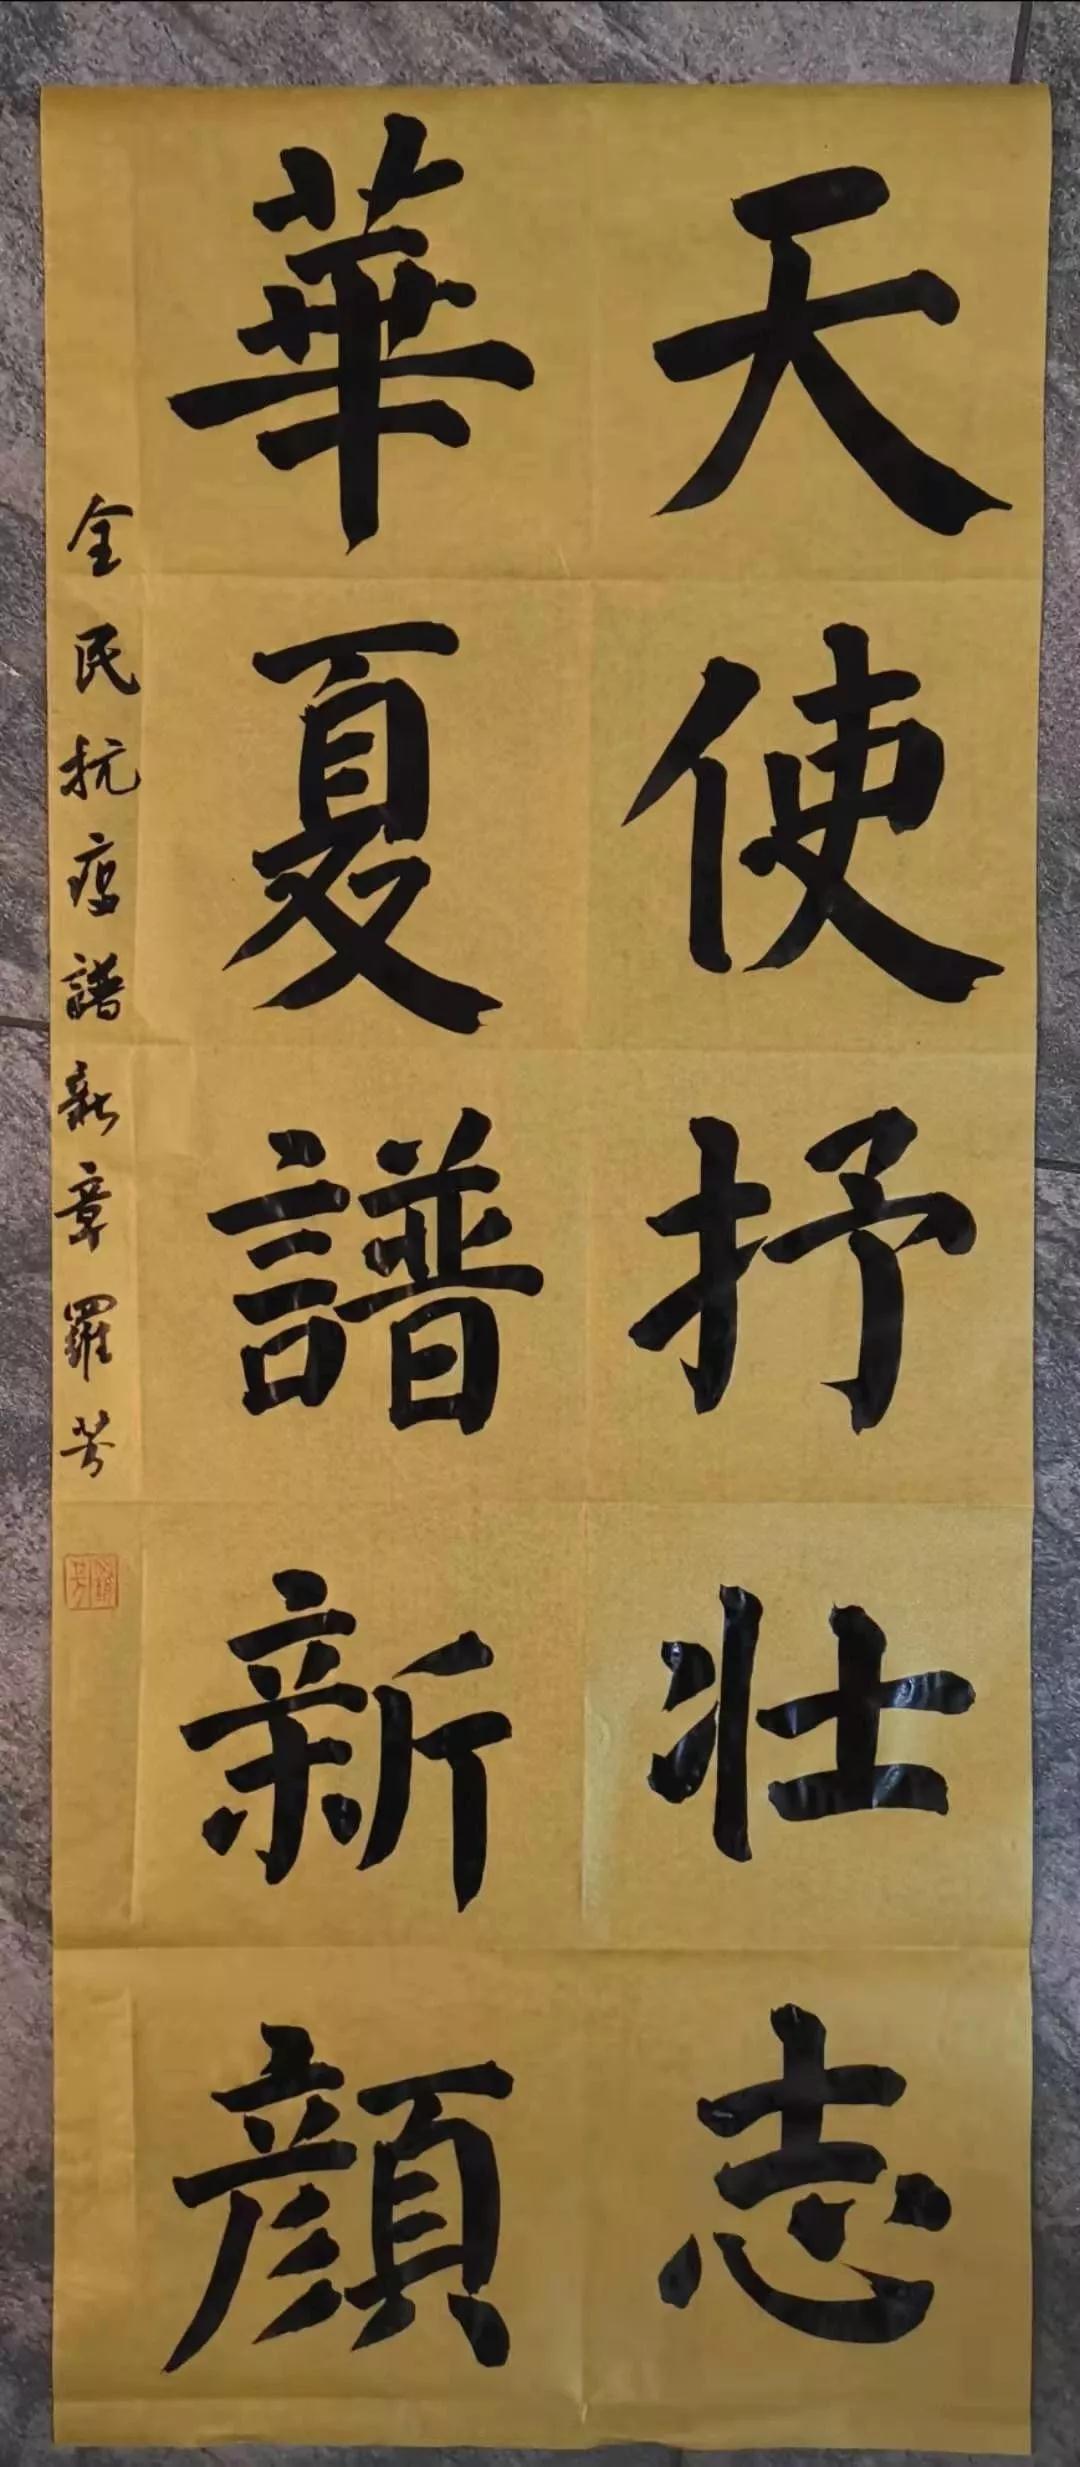 天使抒壯志
華夏譜新顔
全民抗疫譜新章羅芳